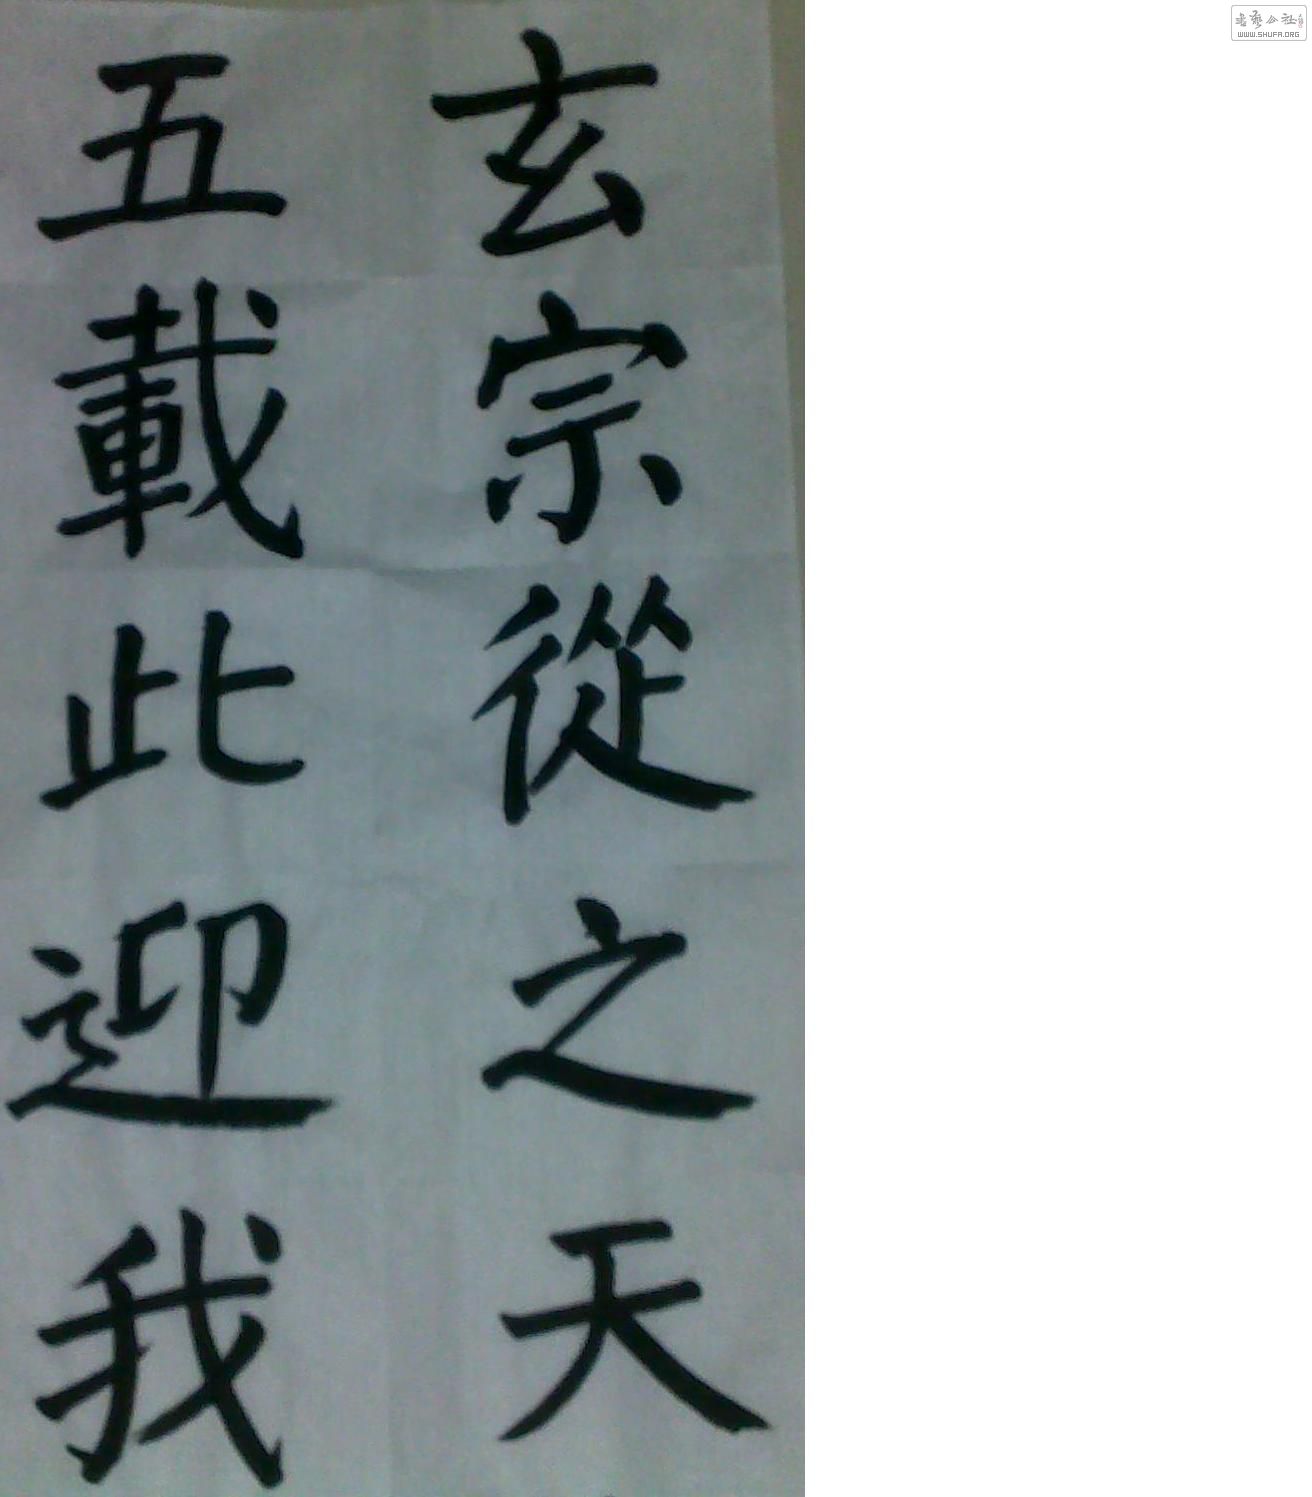 玄宗從之天
五載此迎我
书艺公社
WWW.SHUFA.ORG